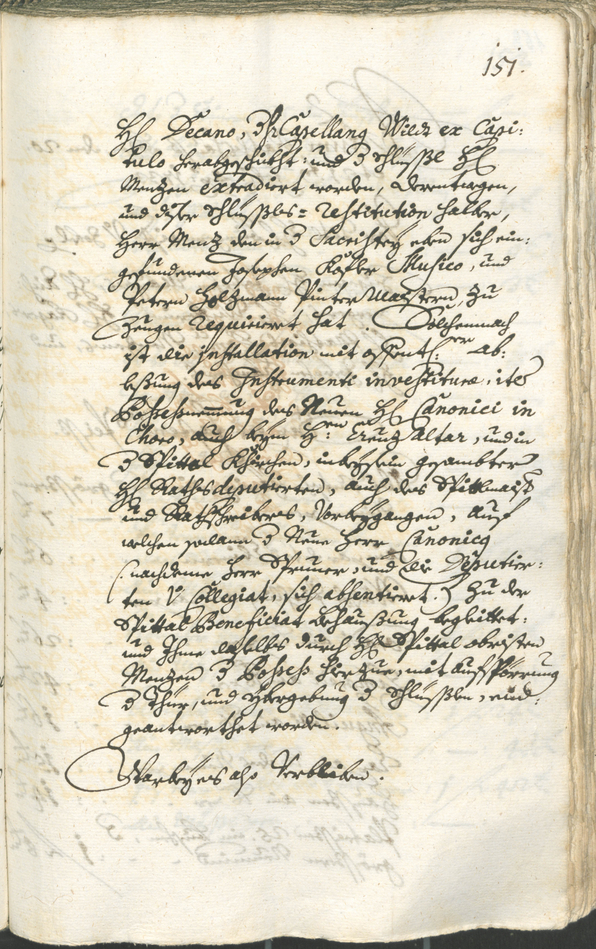 151.
H: Decano, d H: Capellan Wildt ex Capi:
tulo herabgeschikht: und d Schlüssl H:
Mentzen extradiert worden, derentwegen,
und diser Schlüssles= restitution halber,
Herr Mentz den in d Sacristey eben sich ein:
gefundenen Josephen Kofler Musico, und
Petern Holtzmann Pintermaistern, zu
Zeugen requiriert hat. Solchemnach
ist die installation mit offentl:er ab:
lesung des Instrumenti investituræ, ite
Possessnemmung des Neuen H: Canonici in
Choro, auch beym H:en Creuz Altar, und in
d Spittal Khirchen, in beysein gesambter
H: Raths deputierten, auch des Spitlmaist
und Rathschreibers, Vorbeygangen, auf
welchen sodann d Neue Herr Canonicq
(: nachdeme Herr Spruner, und die Deputier:
ten Collegiat, sich absentiert :) zu der
Spittal Beneficiat Behausung begleitet:
und Ihme daselbs durch H: Spittal obristen
Mentzen d Possess hierzue, mit Aufspörrung
d Thür, und Ybergebung d Schlüsslen, ein:
geantworthet worden.
Warbey es also Verbliben.